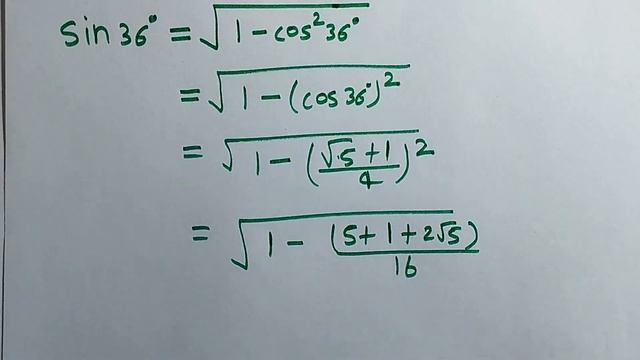 sin 36° = √(1 - cos²36°)
= √(1 - (cos 36°)²)
= √(1 - ((√5 + 1)/4)²)
= √(1 - (5 + 1 + 2√5)/16)